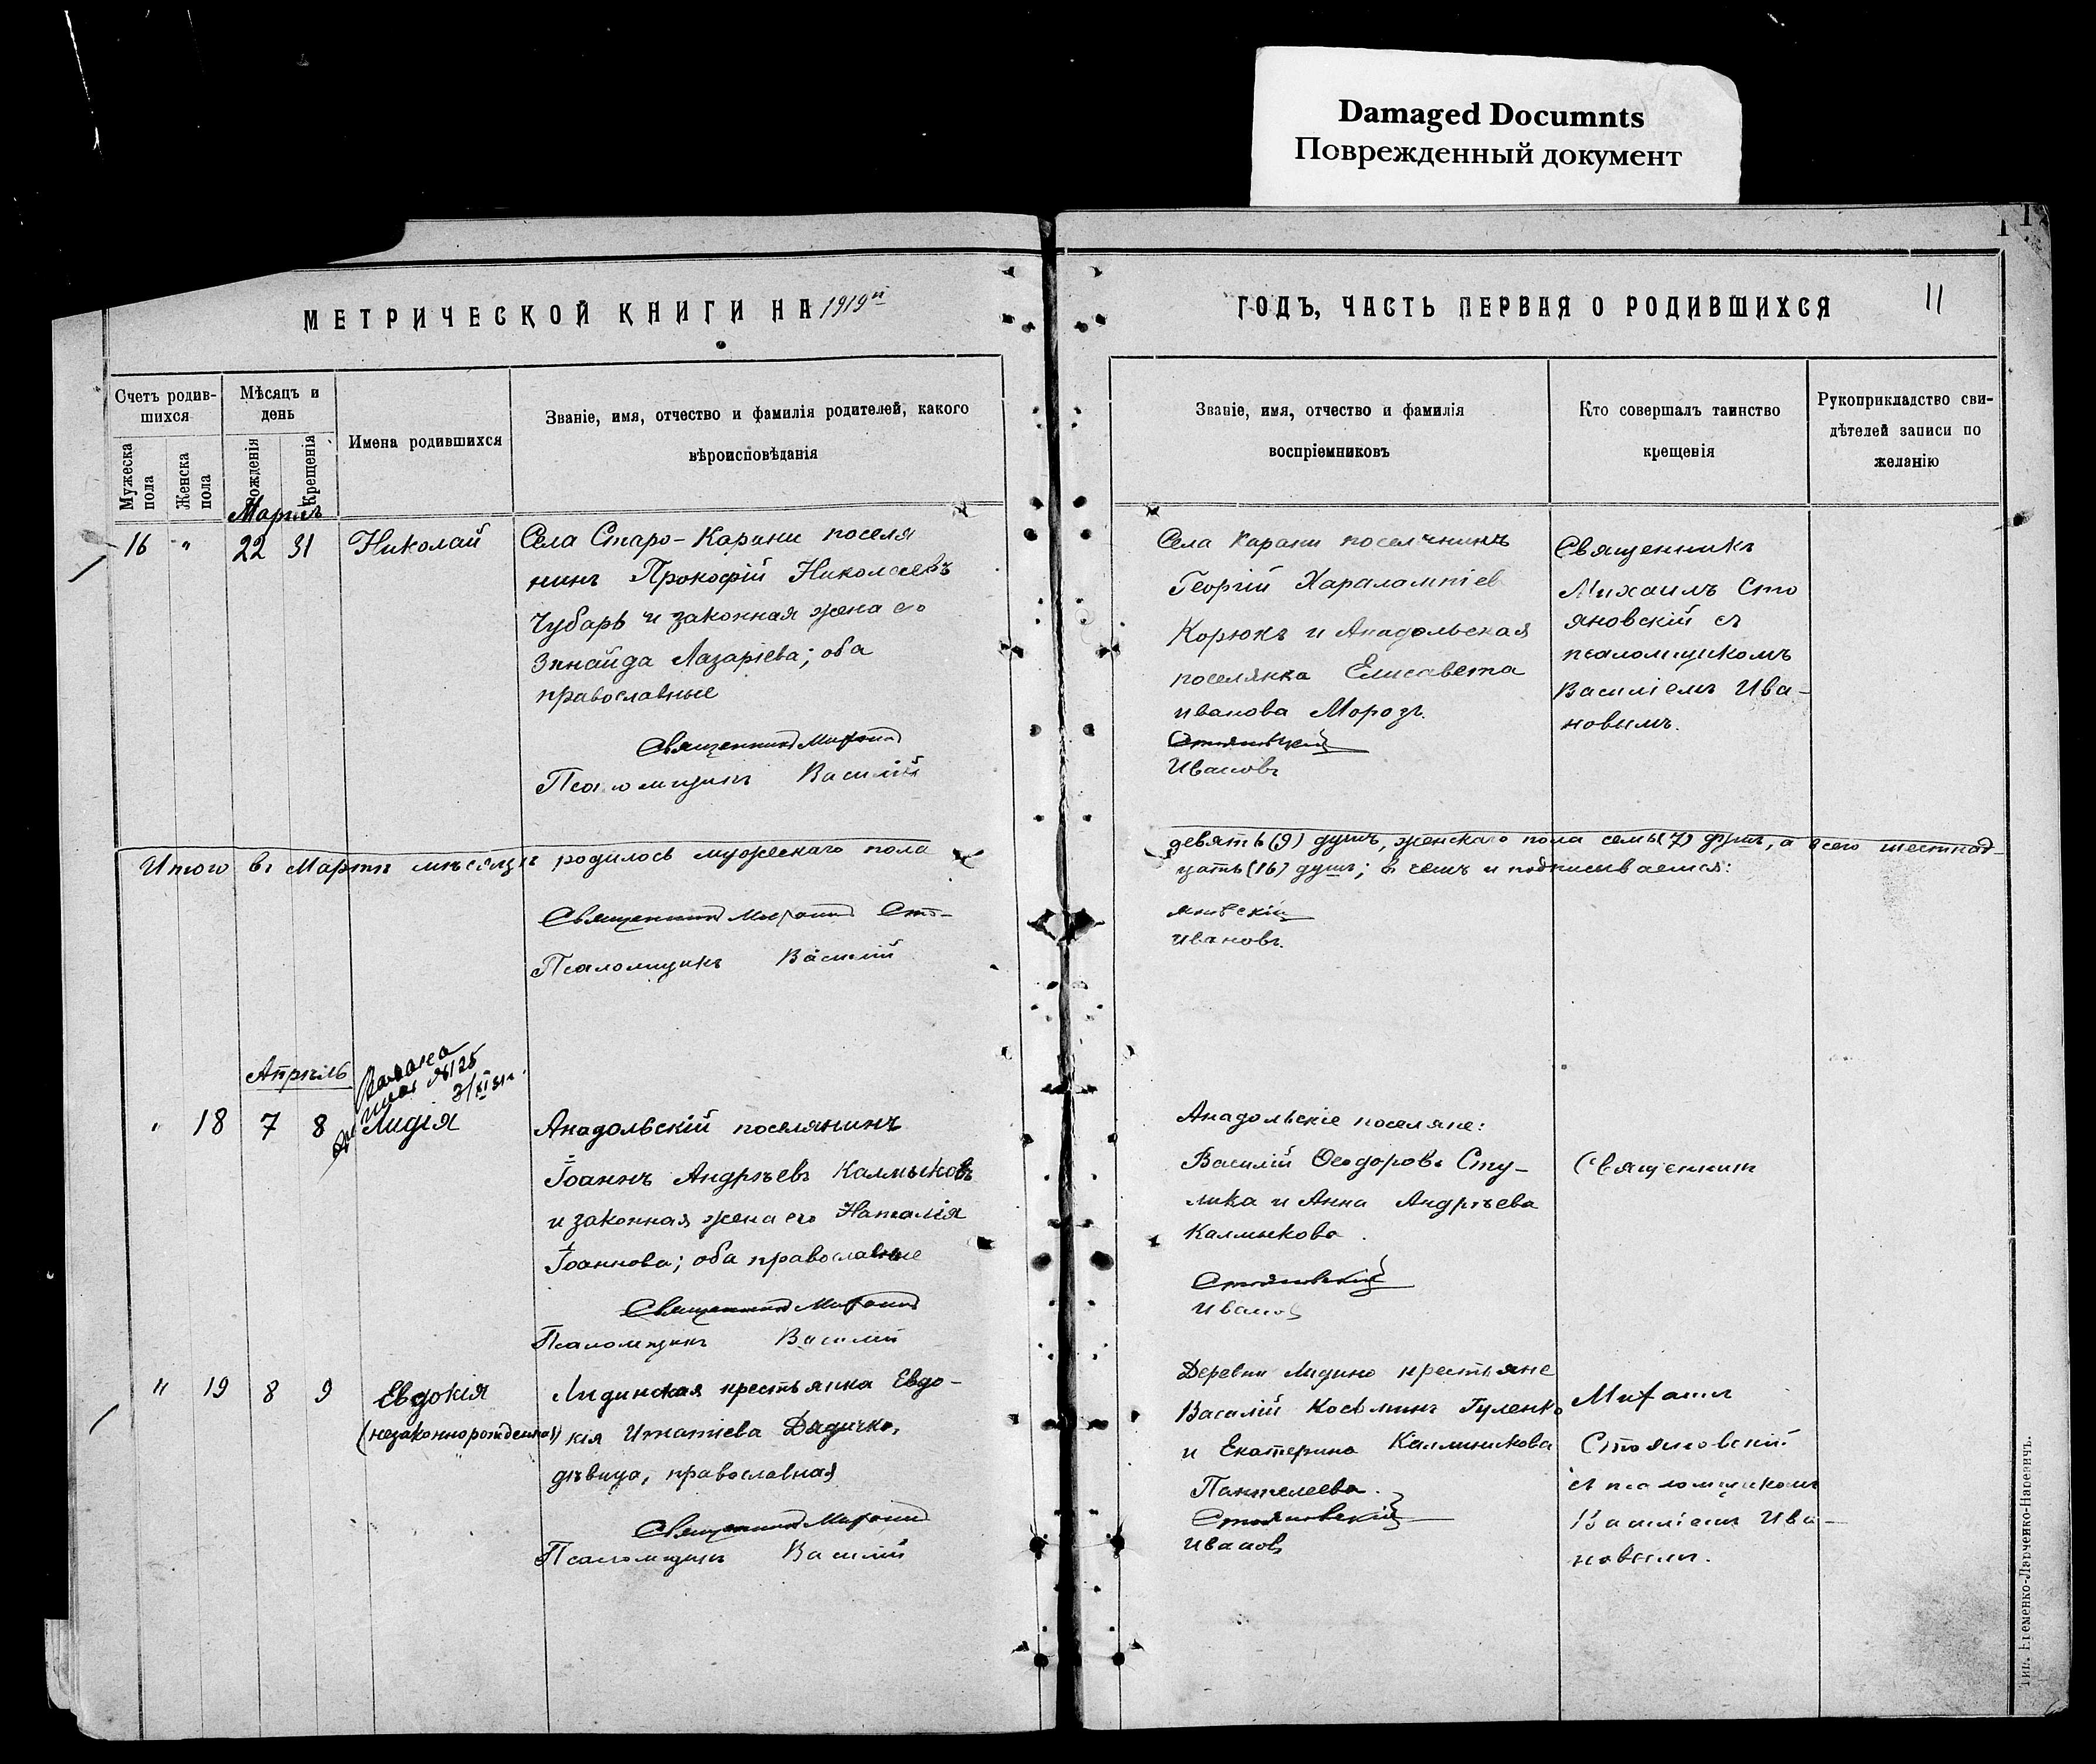 Damaged Documnts
Поврежденный документ
МЕТРИЧЕСКОЙ КНИГИ НА 1919й
ГОДЪ, ЧАСТЬ ПЕРВАЯ О РОДИВШИХСЯ
11
Счетъ родив-
шихся
Мужеска
пола
Женска
пола
Мѣсяцъ и
день
Рожденія
Крещенія
Имена родившихся
Званіе, имя, отчество и фамилія родителей, какого
вѣроисповѣданія
Званіе, имя, отчество и фамилія
воспріемниковъ
Кто совершалъ таинство
крещенія
Рукоприкладство сви-
дѣтелей записи по
желанію
Мартъ
16 " 22 31 Николай
Села Старо-Карани поселя
нинъ Прокофій Николаевъ
Чубарь и законная жена его
Зинаида Лазаріева; оба
православные
Священникъ Михаилъ
Псаломщикъ Василій
Села Карани поселянинъ
Георгій Харалампіев
Корюкъ и Анадольская
поселянка Елисавета
Иванова Морозъ.
Стояновскій
Ивановъ
Священникъ
Михаилъ Сто
яновскій съ
псаломщикомъ
Василіемъ Ива-
новымъ.
Итого въ Мартѣ мѣсяцѣ родилось мужескаго пола
девять (9) душъ, женскаго пола семь (7) душъ, а всего шестнад-
цать (16) душъ; в чемъ и подписываемся:
Священникъ Михаилъ Сто-
яновскій
Псаломщикъ Василій
Ивановъ.
Апрѣль
№125
3/XI 31г.
" 18 7 8 Лидія
Анадольскій поселянинъ
Іоаннъ Андрѣевъ Калмыковъ
и законная жена его Наталія
Іоаннова; оба православные
Священникъ Михаилъ
Псаломщикъ Василій
Анадольскіе поселяне:
Василій Ѳеодоровъ Сту-
лика и Анна Андрѣева
Калмыкова.
Стояновскій
Ивановъ
Священникъ
" 19 8 9 Евдокія
(незаконнорожденная)
Лидинская крестьянка Евдо-
кія Игнатіева Дядичко,
дѣвица, православная
Священникъ Михаилъ
Псаломщикъ Василій
Деревни Лидино крестьяне
Василій Косьминъ Гуленко
и Екатерина Каллиникова
Пантелеева.
Стояновскій
Ивановъ
Михаилъ
Стояновскій
съ псаломщикомъ
Василіемъ Ива-
новымъ.